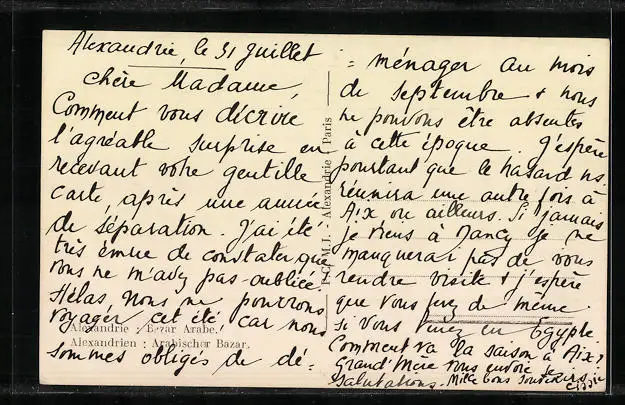 Alexandrie, le 31 juillet
Chère Madame,
Comment vous décrire
l'agréable surprise en
recevant votre gentille
carte, après une année
de séparation. J'ai été
très émue de constater que
vous ne m'avez pas oubliée.
Hélas, nous ne pourrons
voyager cet été car nous
sommes obligés de dé=
Alexandrie : Bazar Arabe.
Alexandrien : Arabischer Bazar.
Alexandrie Paris
= ménager au mois
de septembre & nous
ne pouvons être absentes
à cette époque. J'espère
pourtant que le hasard ns
réunira une autre fois à
Aix ou ailleurs. Si jamais
je viens à Nancy je ne
manquerai pas de vous
rendre visite & j'espère
que vous ferez de même
si vous venez en Egypte.
Comment va la saison à Aix?
Grand'Mère vous envoie
salutations. Mille bons souvenirs